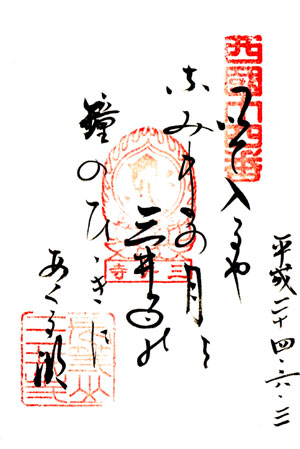 西國十四番
平成二十四・六・三
いで入るや
なみまの月を
三井寺の
鐘のひゞきに
あくる湖